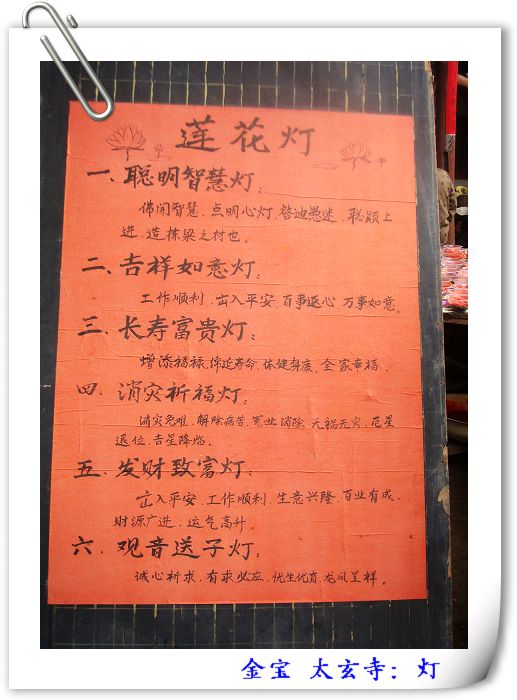 莲花灯
一、聪明智慧灯：
佛开智慧、点明心灯、启迪愚迷、聪颖上
进、造栋梁之材也。
二、吉祥如意灯：
工作顺利、出入平安、百事遂心、万事如意。
三、长寿富贵灯：
增添福禄、绵延寿命、保健身康、全家幸福．
四、消灾祈福灯：
消灾免难、解除病苦、冤业消除、无祸无灾、厄星
退位、吉星降临．
五、发财致富灯：
出入平安、工作顺利、生意兴隆、百业有成、
财源广进、运气高升。
六、观音送子灯：
诚心祈求、有求必应、优生优育、龙凤呈祥。
金宝 太玄寺：灯